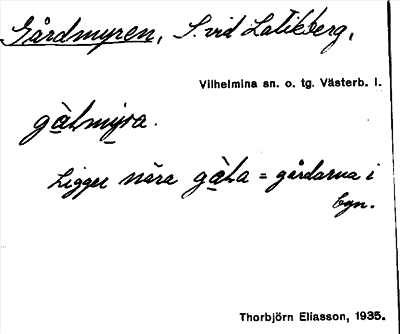 Gårdmyren, S. vid Latikberg,
Vilhelmina sn. o. tg. Västerb. l.
gàLmýra.
Ligger nära gàLa = gårdarna i
byn.
Thorbjörn Eliasson, 1935.